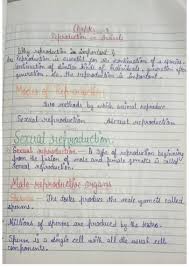 Chapter - 
Reproduction in Animals
Why reproduction is important ?
Ans Reproduction is essential for the continuation of a species.
 of similar kinds of individuals, generation after
generation. So, the reproduction is important.
Modes of Reproduction
Two methods by which animal reproduce
Sexual reproduction Asexual reproduction
Sexual reproduction
Sexual reproduction - A type of reproduction beginning
from the fusion of male and female gametes is called
Sexual reproduction.
Male reproductive organs
The testes produce the male gametes called
sperms.
Millions of sperms are produced by the testes.
Sperm is a single cell with all the usual cell
components.